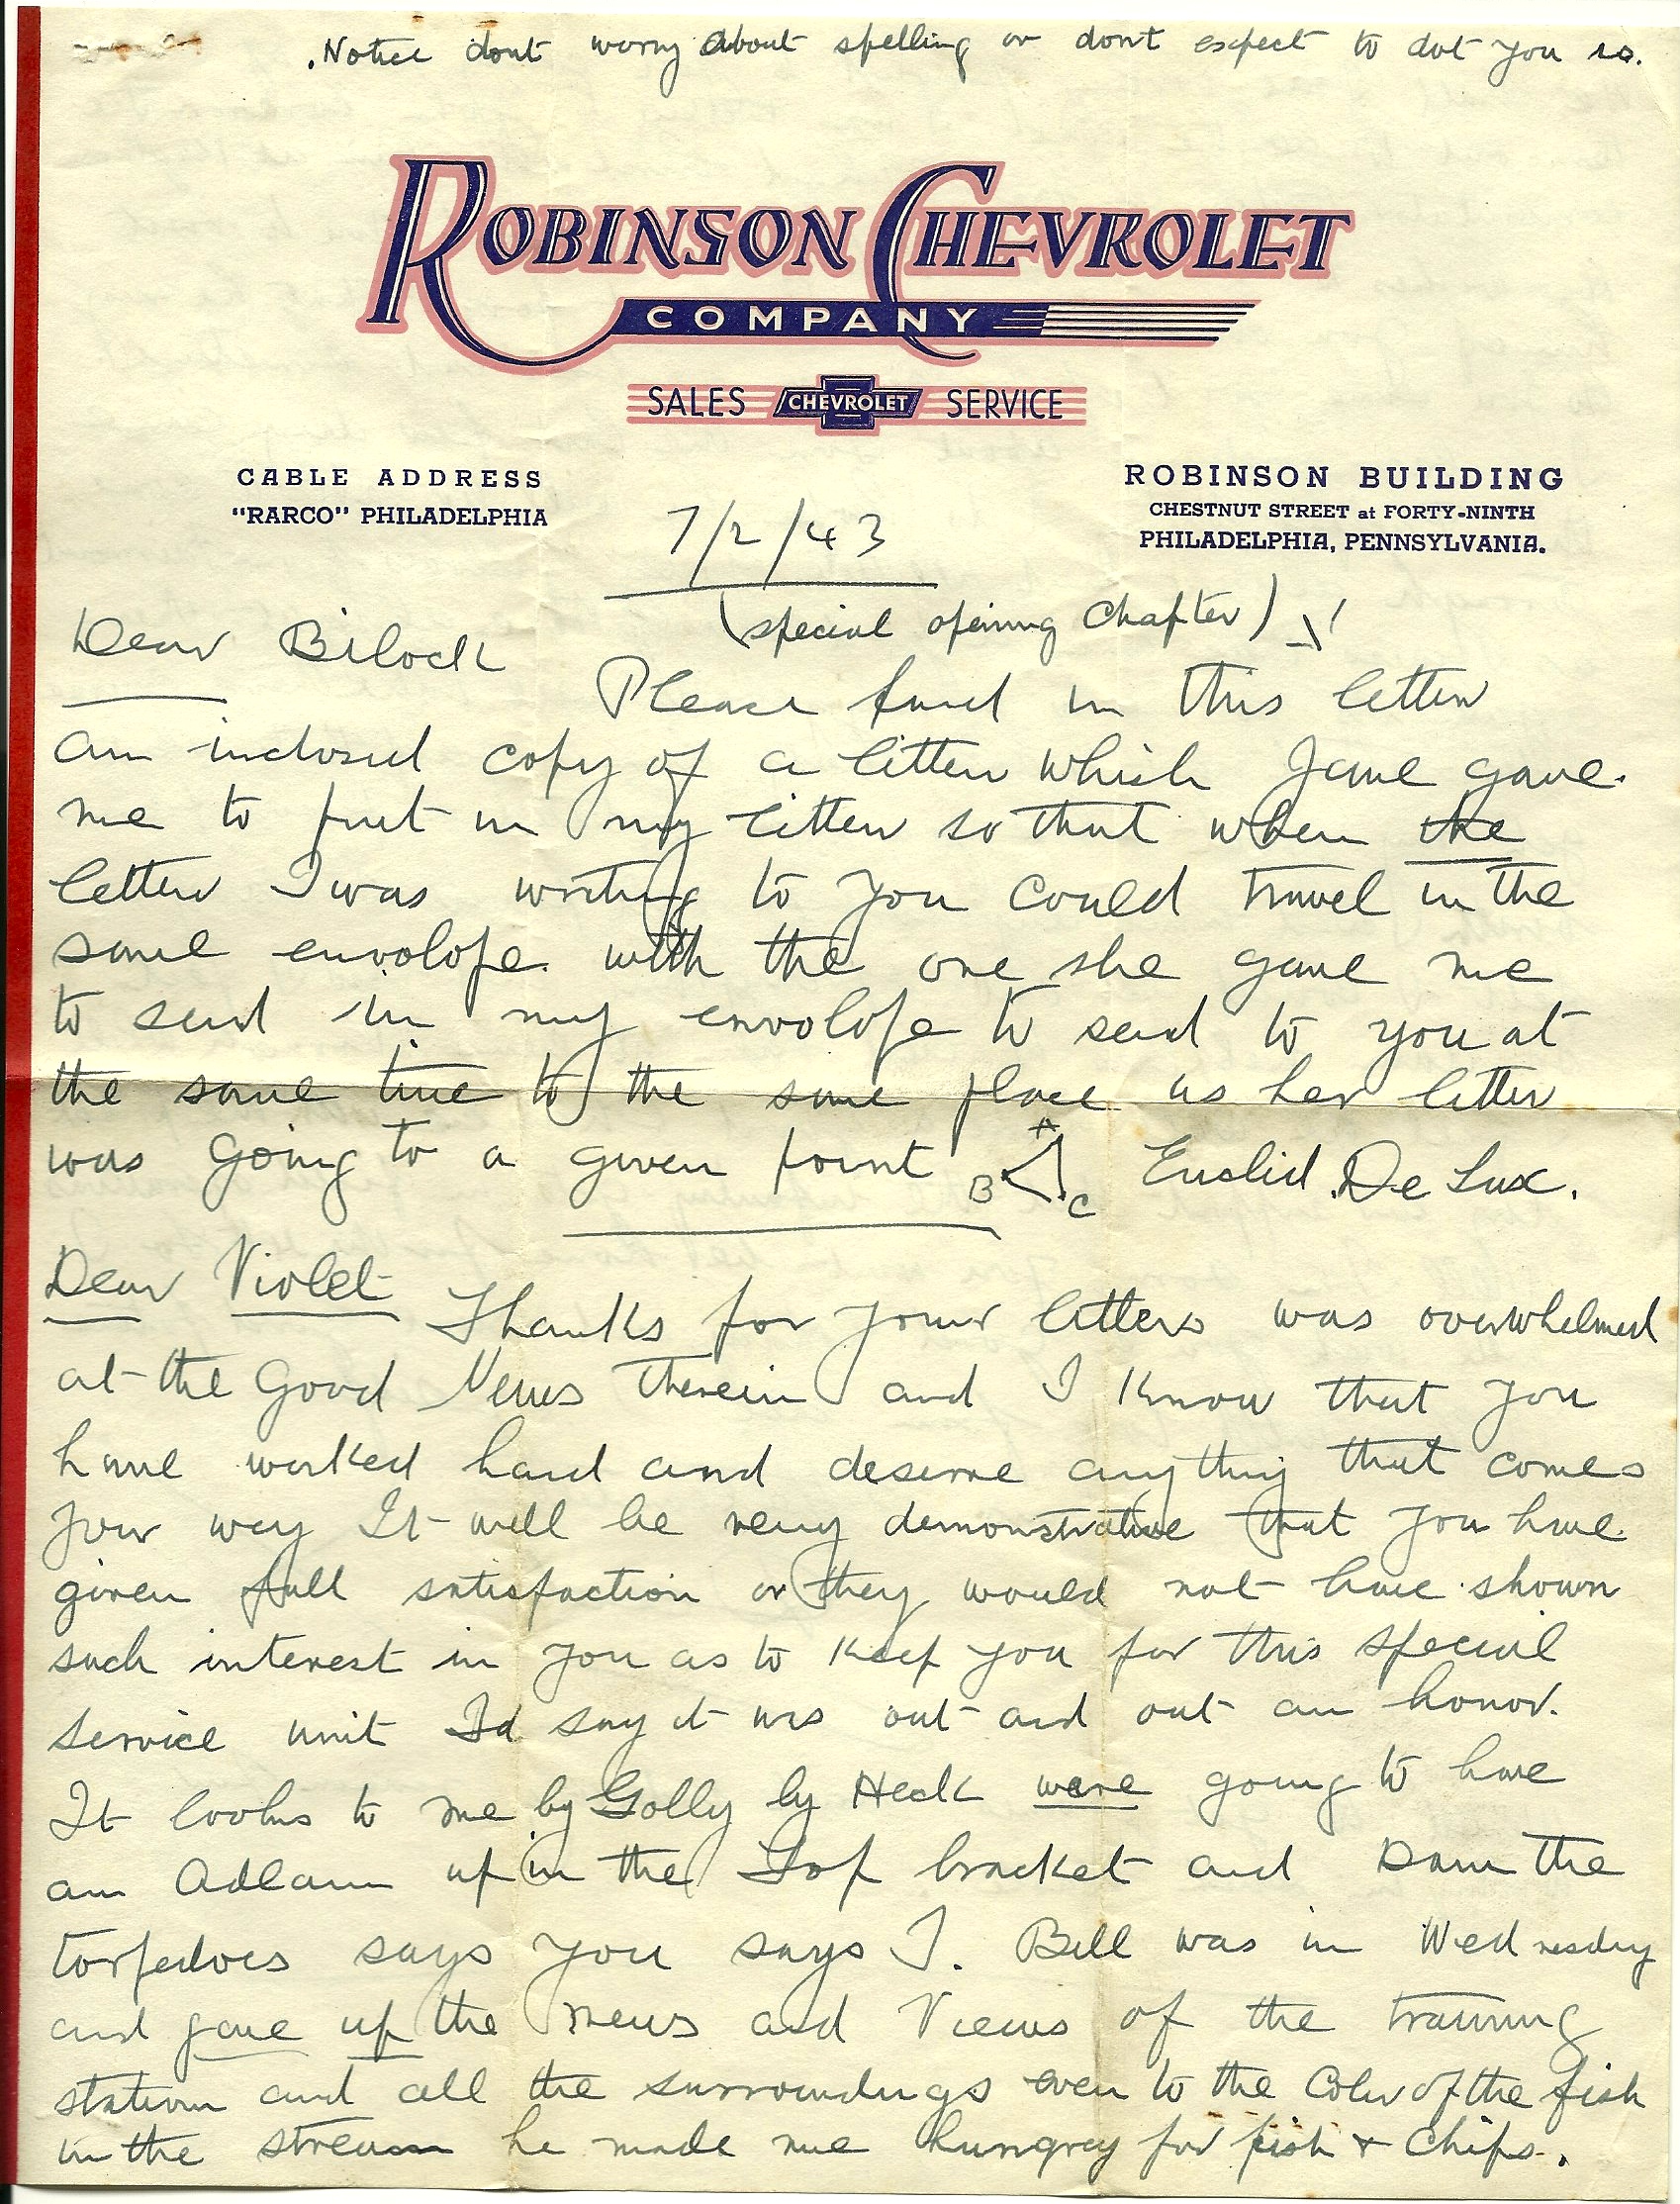 .Notice dont worry about spelling or dont expect to dot you is.
ROBINSON CHEVROLET
COMPANY
SALES CHEVROLET SERVICE
CABLE ADDRESS
"RARCO" PHILADELPHIA
ROBINSON BUILDING
CHESTNUT STREET at FORTY-NINTH
PHILADELPHIA, PENNSYLVANIA.
7/2/43
(special opening Chapter)
Dear Bilock
Please find in this letter
an inclosed copy of a letter which Jane gave
me to put in my letter so that when the
letter I was writing to you could travel in the
same envolope with the one she gave me
to send in my envolope to send to you at
the same time to the same place as her letter
was going to a given point A B C Euclid. De Lux.
Dear Violet
Thanks for your letters was overwhelmed
at the Good News therein and I Know that you
have worked hard and deserve anything that comes
your way It will be very demonstrative that you have
given full satisfaction or they would not have shown
such interest in you as to Keep you for this special
service unit Id say it was out and out an honor.
It looks to me by Golly by Heck were going to have
an Adlam up in the Top bracket and Dam the
torpedoes says you says I. Bill was in Wednesday
and gave up the news and Views of the training
station and all the surroundings even to the Color of the fish
in the stream he made me hungrey for fish + Chips.